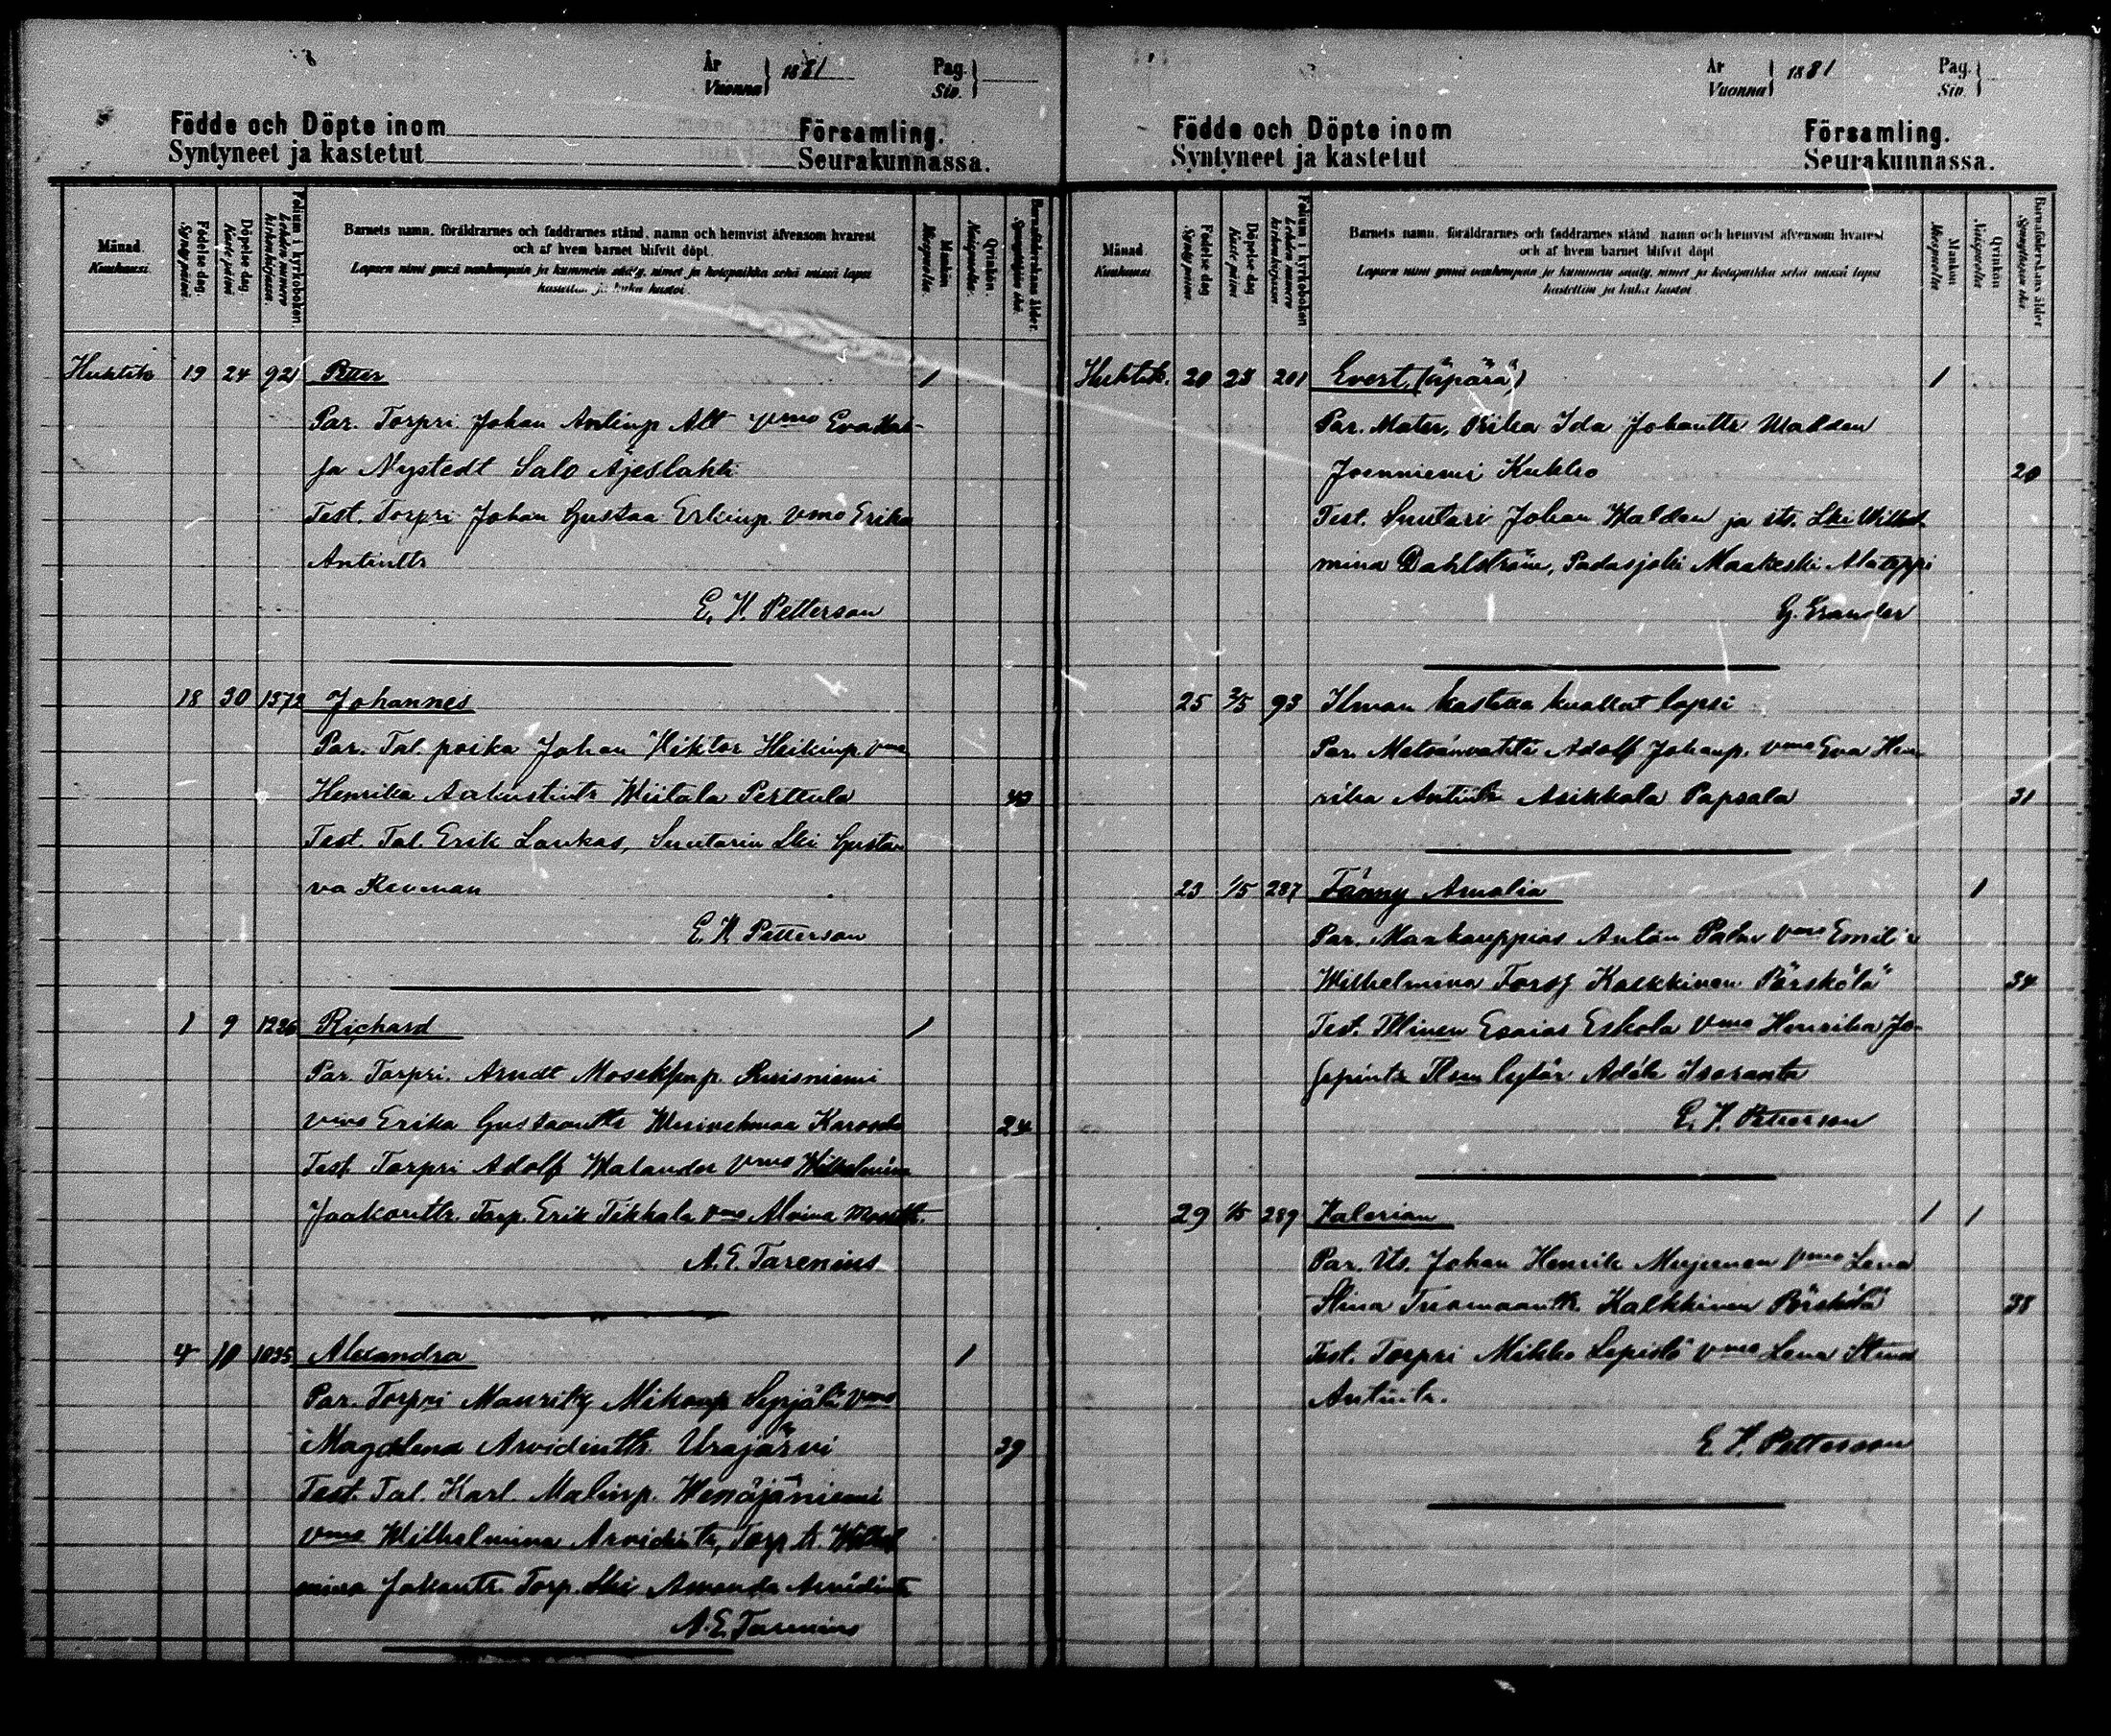 År
Vuonna } 1881
Pag.
Siv. }
Födde och Döpte inom Församling.
Syntyneet ja kastetut Seurakunnassa.
Månad. Kuukausi.
Födelse dag. Synty päivä.
Döpelse dag Kaste päivä
Folium i kyrkoboken. Lehden numero kirkonkirjassa.
Barnets namn, föräldrarnes och faddrarnes stånd, namn och hemvist äfvensom hvarest
och af hvem barnet blifvit döpt.
Lapsen nimi ynnä vanhempain ja kummein sääty, nimet ja kotopaikka sekä missä lapsi
kastettiin ja kuka kastoi.
Mankön Miespuolia.
Qvinkön. Naispuolia.
Barnaföderskans ålder. Synnyttäjän ikä.
Huhtik 19 24 921 Petter 1
Par. Torpri Johan Antinp Alt vmo Eva
ja Nystedt Salo Äjeslahti
Test. Torpri Johan Gustaa Erkinp vmo Erika
Antintr
E. W. Petterson
18 30 1372 Johannes
Par. Tal. poika Johan Wiktor Heikinp vmo
Henrika Aakustintr Wiitala Perttula 40
Test. Tal. Erik Laukas, Suutarin Lki Gusta
va Rewman
E. W. Petterson
1 9 1226 Richard 1
Par. Torpri. Arndt Moseksenp. Ruisniemi
vmo Erika Gustaantr 24
Test. Torpri Adolf Walander vmo Wilhelmina
Jaakontr. Torp. Erik Tikkala vmo Alvina
A. E. Tarenius
4 10 1035 Alexandra 1
Par. Torpri Mauritz Mikonp Syrjälä vmo
Magdlena Arvidintr. Urajärvi 39
Test. Tal. Karl. Malinp. Henäjäniemi
vmo Wilhelmina Arvidintr, Torp. tr. Wilhel
mina Jakontr. Torp. Lki Amanda Arvidintr
A. E. Tarenius
År
Vuonna } 1881
Pag.
Siv. }
Födde och Döpte inom Församling.
Syntyneet ja kastetut Seurakunnassa.
Månad Kuukausi
Födelse dag Synty päivä
Döpelse dag Kaste päivä
Folium i kyrkoboken Lehden numero kirkonkirjassa
Barnets namn, föräldrarnes och faddrarnes stånd, namn och hemvist äfvensom hvarest
och af hvem barnet blifvit döpt
Lapsen nimi ynnä vanhempain ja kummein sääty, nimet ja kotopaikka sekä missä lapsi
kastettiin ja kuka kastoi
Mankön Miespuolia
Qvinkön Naispuolia
Barnaföderskans ålder Synnyttäjän ikä
Huhtik. 20 23 201 Evert, (äpärä) 1
Par. Mater, Piika Ida Johantr Walden
Joenniemi Kukko 20
Test. Suutari Johan Walden ja its. Lki Wilhel
mina Dahlström, Padasjoki Maakeski
G. Grander
25 2/5 93 Ilman kastetta kuollut lapsi
Par. Adolf Johanp. vmo Eva Hen
rika Antintr Asikkala Papsala 31
23 1/5 287 Fanny Amalia 1
Par. Maakauppias Anton Palm vmo Emilia
Wilhelmina Forss Kalkkinen Pörskölä 34
Test. Tllinen Esaias Eskola vmo Henrika Jo
sepintr Tllsen tytär Adèle Isoranta
E. W. Petterson
29 1/5 289 Valerian 1 1
Par. Its. Johan Henrik Mujunen vmo Lena
Stina Tuomaantr. Kalkkinen Pörskölä 38
Test. Torpri Mikko Lepistö vmo Lena Stina
Antintr.
E. W. Petterson